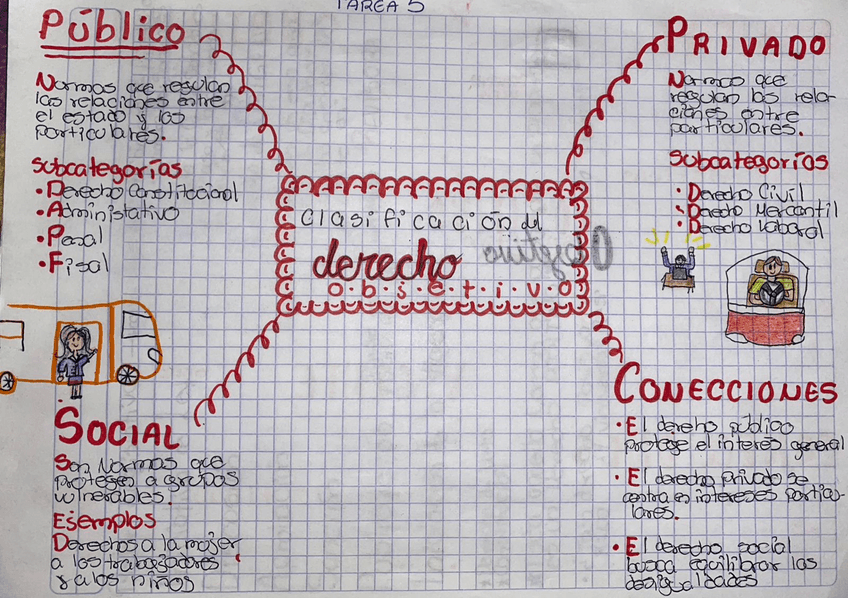 TAREA 5
Público
Normas que regulan
las relaciones entre
el estado y los
particulares.
Subcategorías
• Derecho Constitucional
• Administativo
• Penal
• Fisal
PRIVADO
Normas que
regulan las rela-
ciones entre
particulares.
Subcategorías
• Derecho Civil
• Derecho Mercantil
• Derecho Laboral
Clasificación del
derecho
o.b.s.e.t.i.v.o
SOCIAL
Son Normas que
protegen a grupos
vulnerables.
Ejemplos
Derechos a la mujer
a los trabajadores
y a los niños
CONECCIONES
• El dereho público
protege el interés general
• El derecho privado se
centra en intereses particu-
lares.
• El derecho social
busca equilibrar las
desigualdades